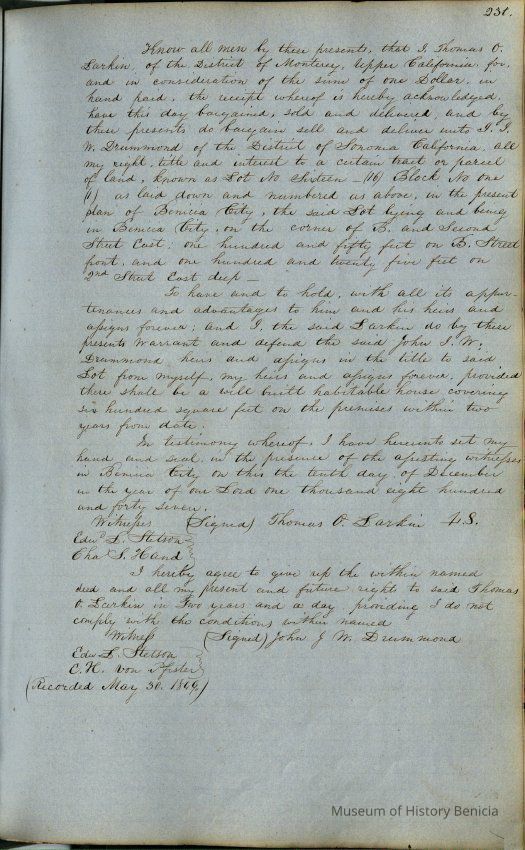 231.
Know all men by these presents, that I, Thomas O.
Larkin, of the District of Monterey, Upper California, for,
and in consideration of the sum of one Dollar, in
hand paid, the receipt whereof is hereby acknowledged,
have this day bargained, sold and delivered, and by
these presents do bargain sell and deliver unto J. J.
W. Drummond of the District of Sonoma California, all
my right, title and interest to a certain tract or parcel
of land, known as Lot No Sixteen (16) Block No one
(1) as laid down and numbered as above, in the present
plan of Benicia City, the said Lot lying and being
in Benicia City, on the corner of B. and Second
Street East; one hundred and fifty feet on B. Street
front, and one hundred and twenty five feet on
2nd Street East deep —
To have and to hold, with all its appur-
tenances and advantages to him and his heirs and
assigns forever; and I, the said Larkin do by these
presents Warrant and defend the said John J. W.
Drummond heirs and assigns in the title to said
Lot from myself, my heirs and assigns forever, provided
there shall be a well built habitable house covering
six hundred square feet on the premises within two
years from date.
In testimony whereof, I have hereunto set my
hand and seal in the presence of the attesting witnesses
in Benicia City on this the tenth day of December
in the year of our Lord one thousand eight hundred
and forty seven.
Witnesses (Signed) Thomas O. Larkin L.S.
Edwd L. Stetson
Chas S. Hand
I hereby agree to give up the within named
deed and all my present and future right to said Thomas
O. Larkin in Two years and a day, providing I do not
comply with the conditions within named
Witness (Signed) John J W. Drummond
Edw L. Stetson
C. H. von Pfister
(Recorded May 30. 1849)
Museum of History Benicia